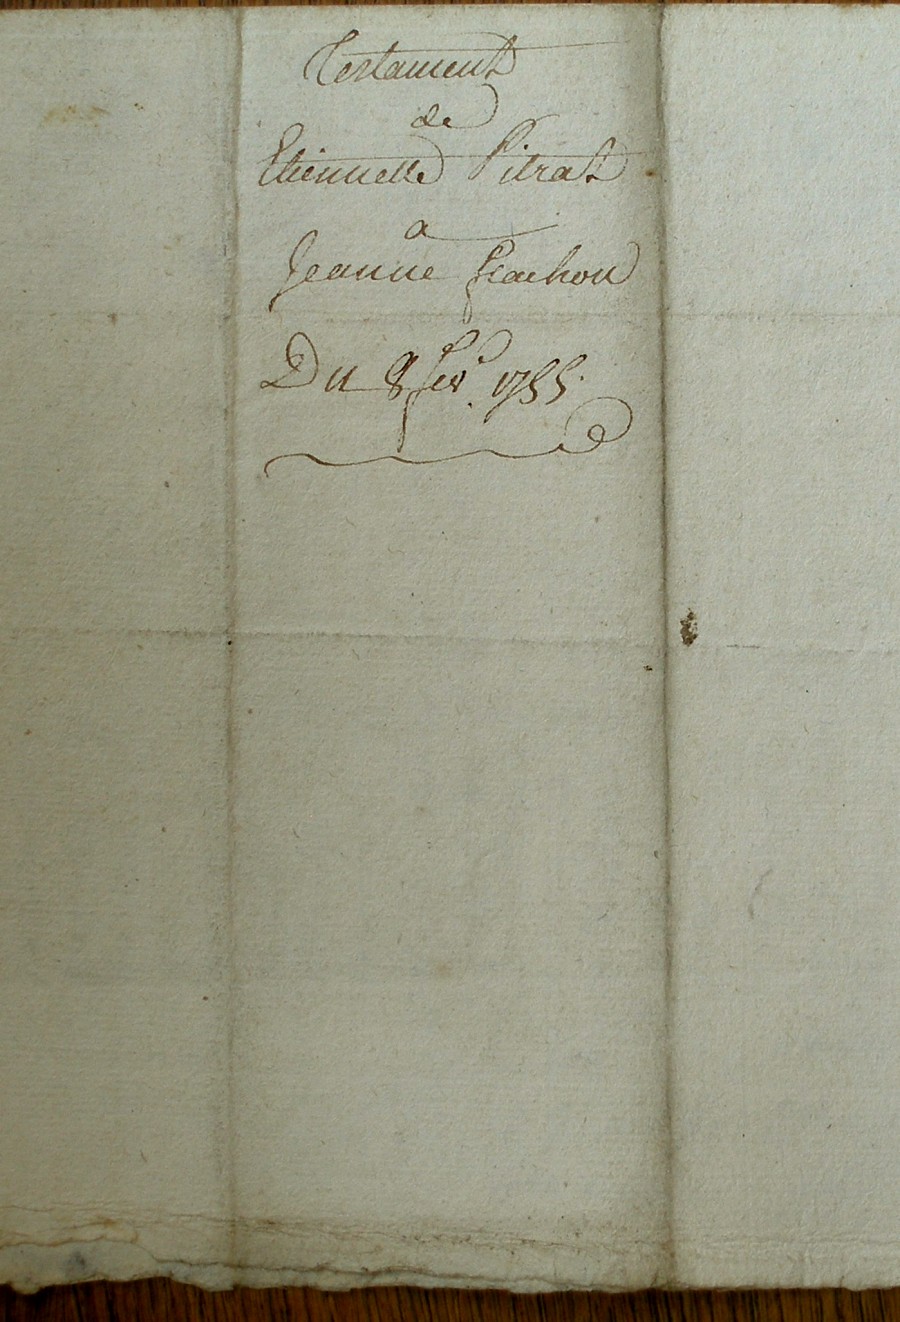 Testament
de
Etiennette Pitrat
a
Jeanne Frachon
Du 8 fev.r 1755.